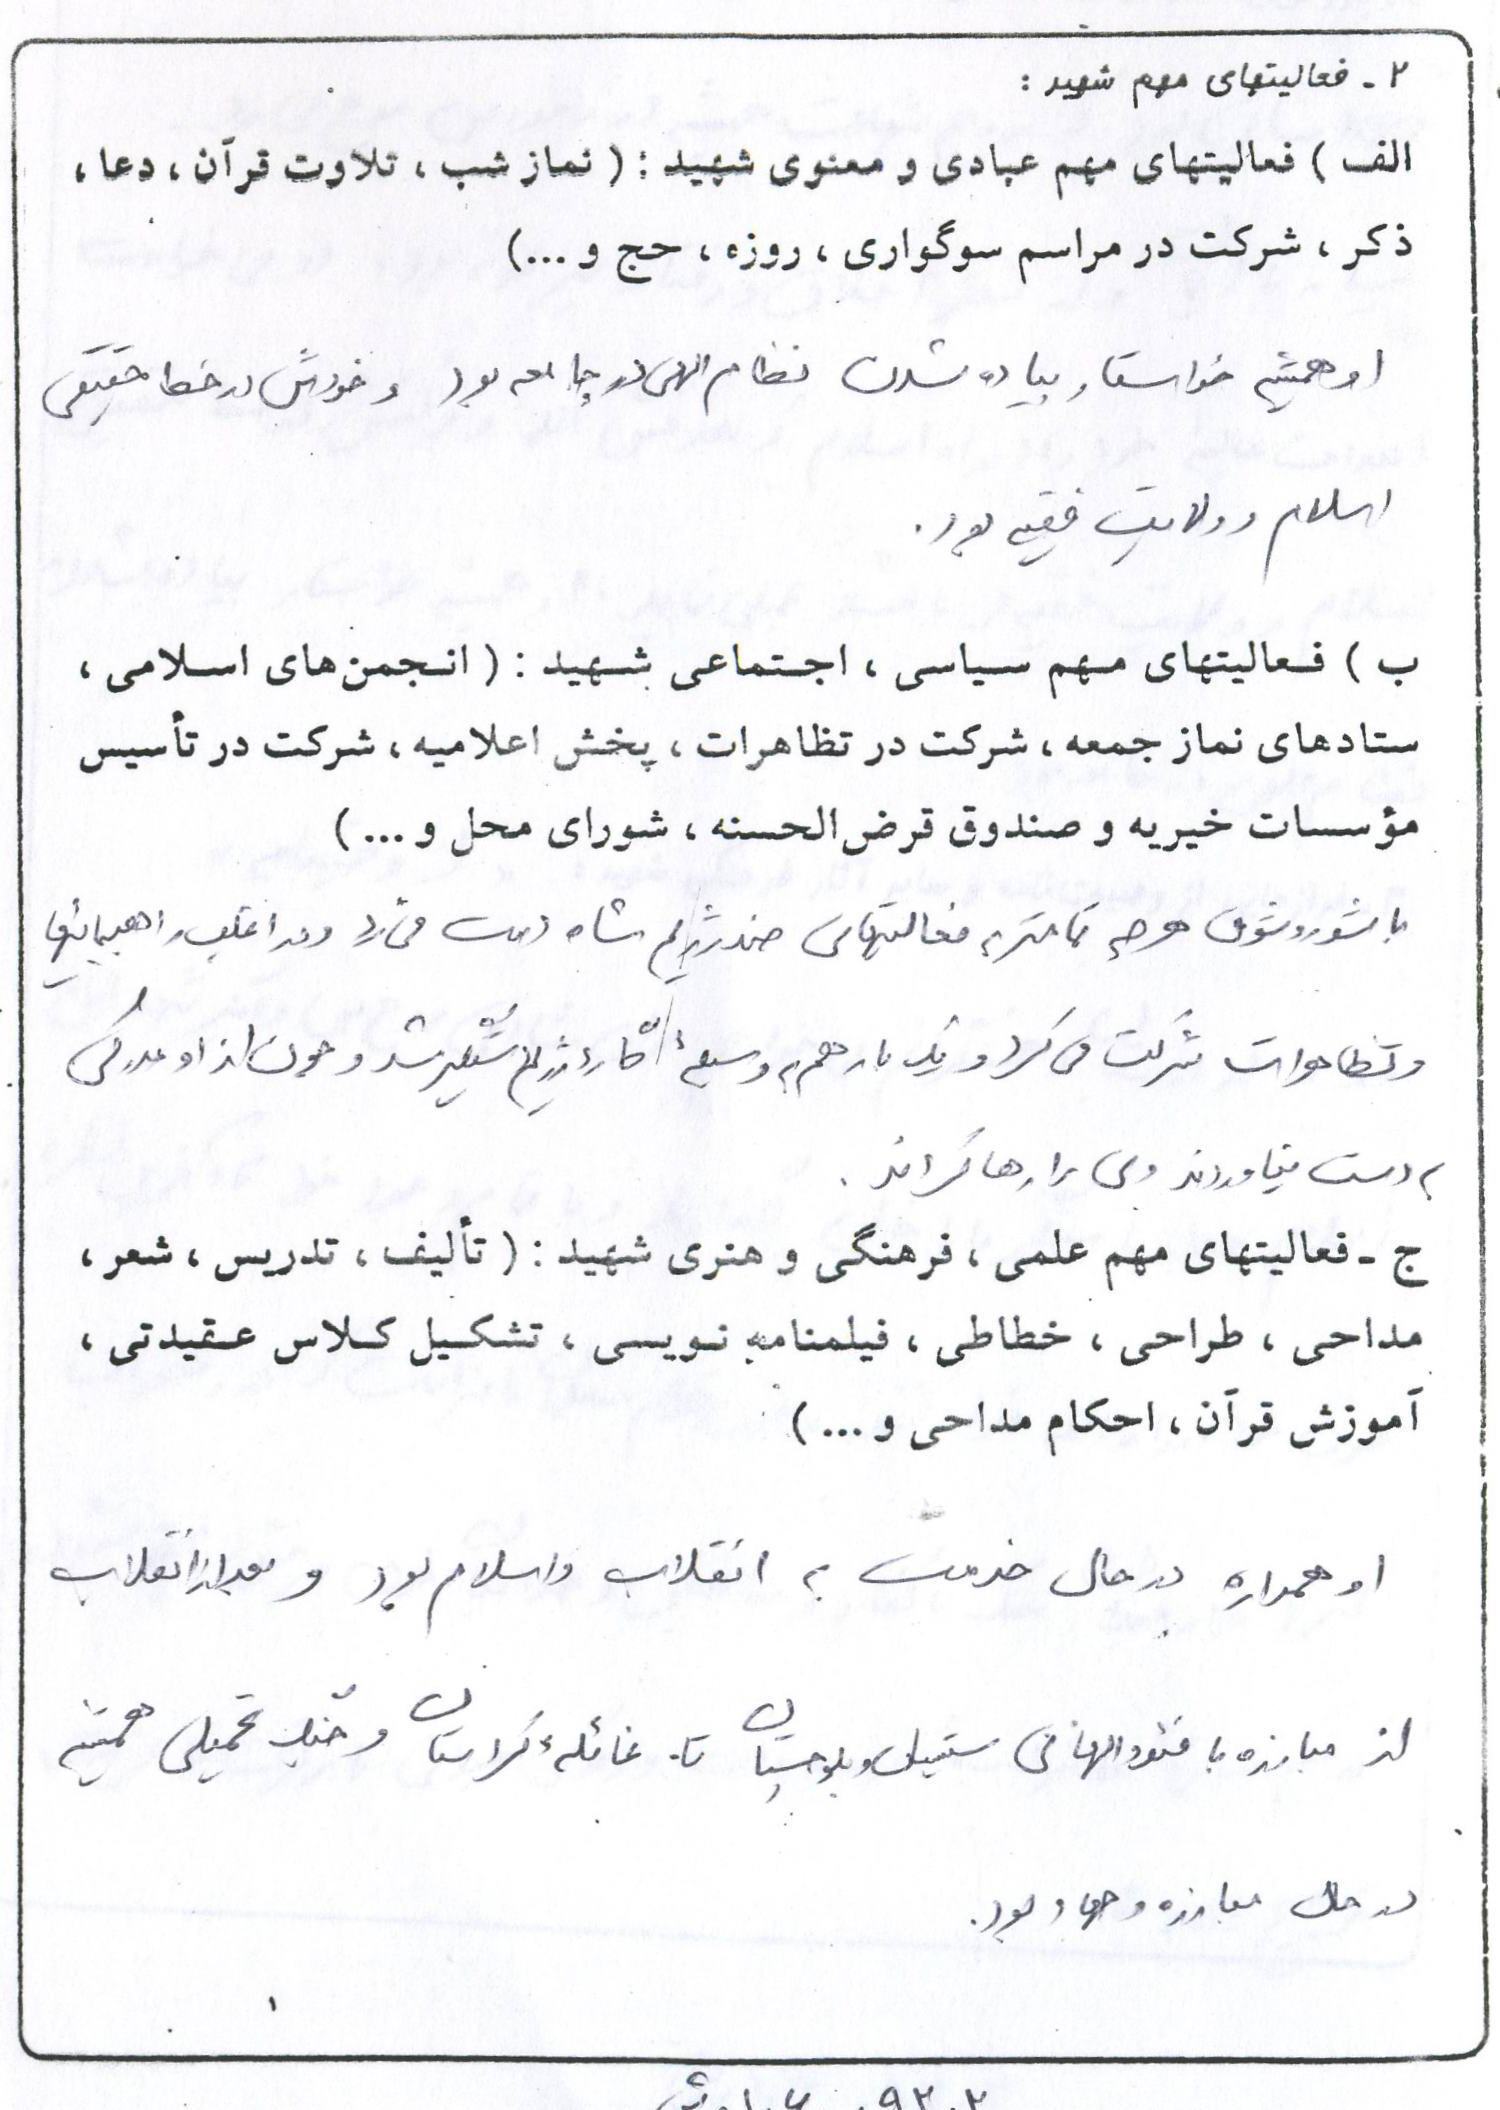 ۲ ـ فعالیتهای مهم شهید :
الف ) فعالیتهای مهم عبادی و معنوی شهید : ( نماز شب ، تلاوت قرآن ، دعا ،
ذکر ، شرکت در مراسم سوگواری ، روزه ، حج و ...)
او همیشه خواستار پیاده شدن نظام الهی در جامعه بود و خودش در خط حقیقی
اسلام و ولایت فقیه بود.
ب ) فعالیتهای مهم سیاسی ، اجتماعی شهید : ( انجمن‌های اسلامی ،
ستادهای نماز جمعه ، شرکت در تظاهرات ، پخش اعلامیه ، شرکت در تأسیس
مؤسسات خیریه و صندوق قرض‌الحسنه ، شورای محل و ... )
با شور و شوق هر چه تمامتر به فعالتهای ضد رژیم شاه دست می‌زد و در اغلب راهپیمائیها
و تظاهرات شرکت می کرد و یک بار هم به وسیلهٔ رژیم دستگیر شد و چون از او مدرکی
به دست نیاوردند وی را رها کردند .
ج ـ فعالیتهای مهم علمی ، فرهنگی و هنری شهید : ( تألیف ، تدریس ، شعر ،
مداحی ، طراحی ، خطاطی ، فیلمنامه نویسی ، تشکیل کلاس عقیدتی ،
آموزش قرآن ، احکام مداحی و ... )
او همواره در حال خدمت به انقلاب و اسلام بود و بعد از انقلاب
از مبارزه با فئودالهای سیستان و بلوچستان تا غائلهٔ کردستان و جنگ تحمیلی همیشه
در حال مبارزه و جهاد بود.